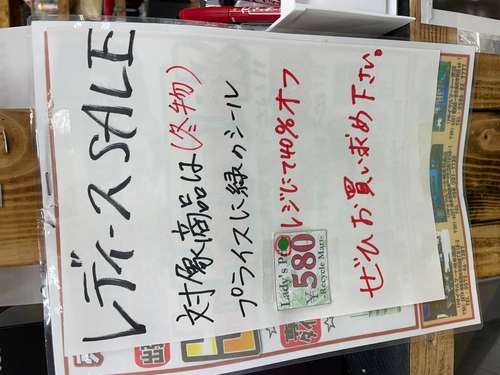 レディースSALE
対象商品は(冬物)
プライスに緑のシール
Lady's P
¥580
Recycle Mart
レジにて40%オフ
ぜひお買い求め下さい。